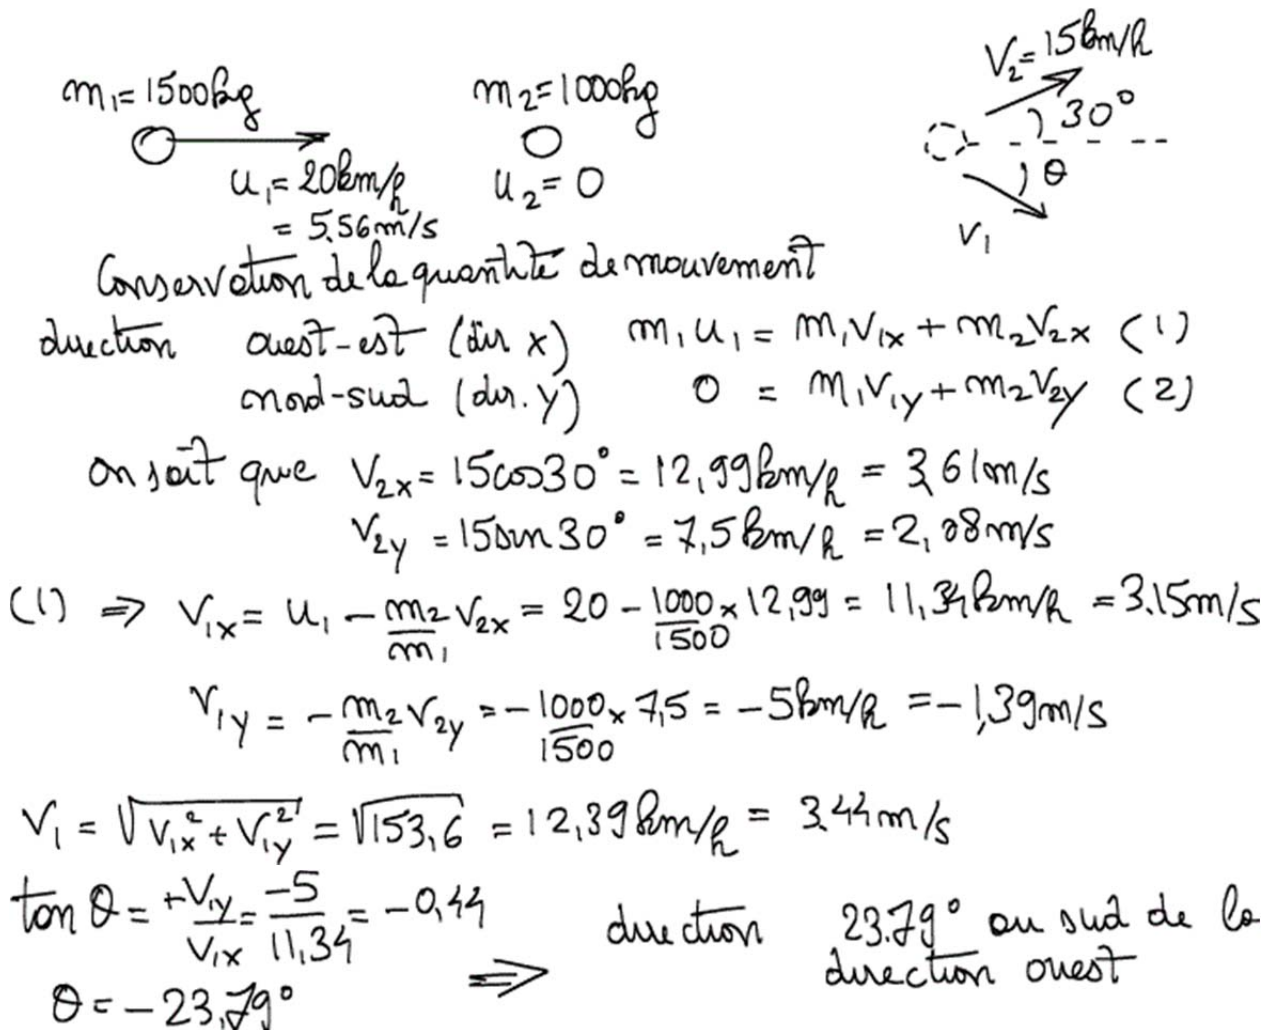 m₁=1500kg m₂=1000kg V₂=15km/h
30°
u₁=20km/h u₂=0 θ
=5.56m/s V₁
Conservation de la quantité de mouvement
direction ouest-est (dir x) m₁u₁ = m₁V₁ₓ + m₂V₂ₓ (1)
nord-sud (dir. y) 0 = m₁V₁y + m₂V₂y (2)
on sait que V₂ₓ = 15cos30° = 12,99km/h = 3,61m/s
V₂y = 15sin30° = 7,5km/h = 2,08m/s
(1) ⇒ V₁ₓ = u₁ - m₂/m₁ V₂ₓ = 20 - 1000/1500 × 12,99 = 11,34km/h = 3.15m/s
V₁y = - m₂/m₁ V₂y = - 1000/1500 × 7,5 = -5km/h = -1,39m/s
V₁ = √(V₁ₓ² + V₁y²) = √153,6 = 12,39km/h = 3.44m/s
tan θ = +V₁y/V₁ₓ = -5/11,34 = -0,44 direction 23.79° au sud de la
θ = -23,79° ⇒ direction ouest